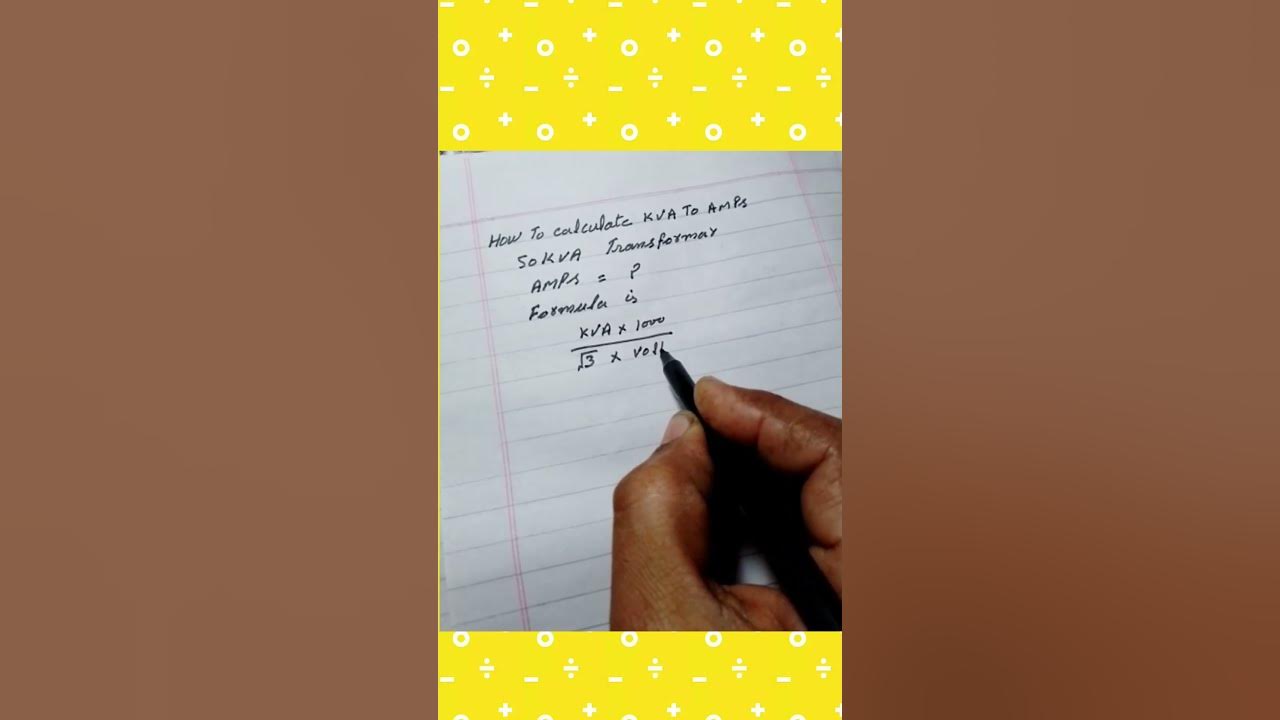 How To calculate KVA To AMPs
50 KVA Transformar
AMPs = ?
Formula is
KVA x 1000
√3 x Volt